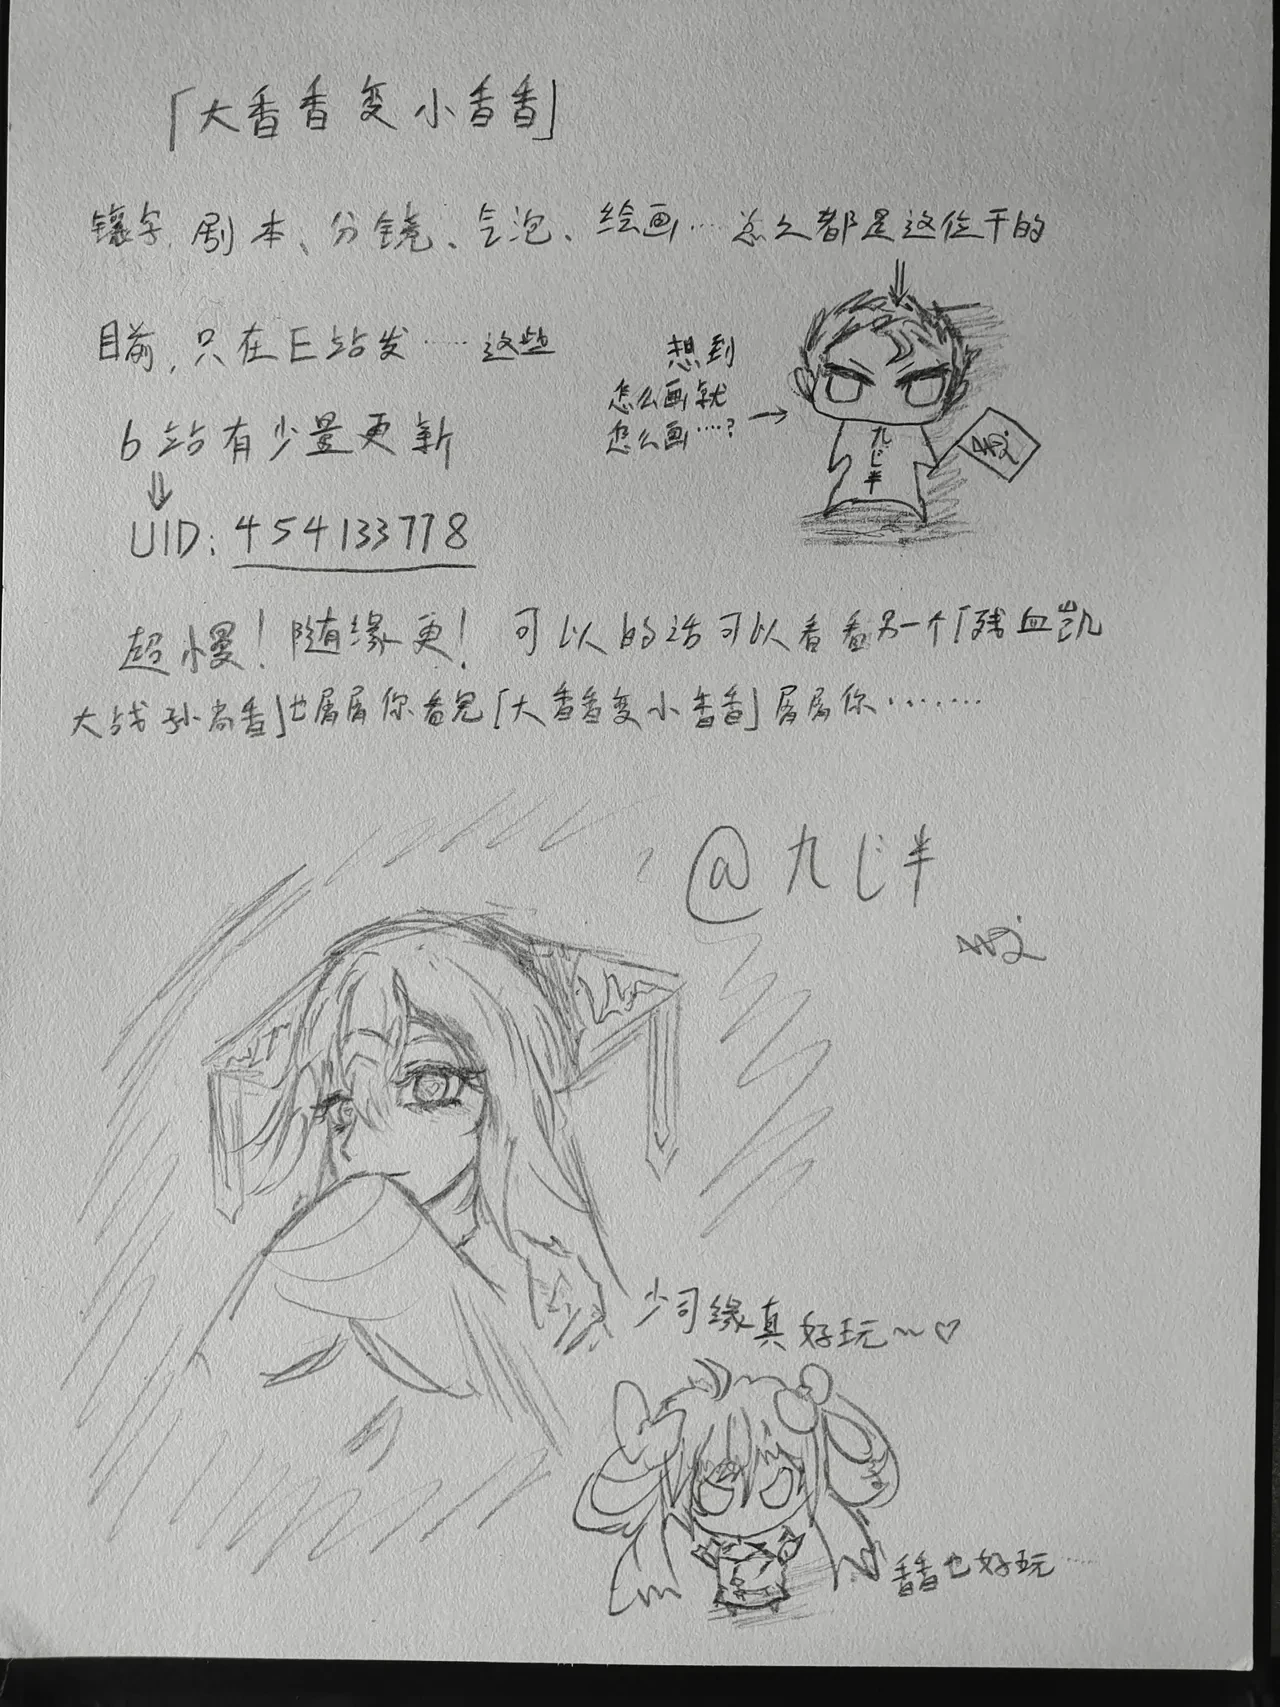 「大香香变小香香」
镶字、剧本、分镜、气泡、绘画……怎么都是这位干的
目前,只在E站发……这些
想到
怎么画就
怎么画…?
九じ半
b站有少量更新
UID:454133778
超慢!随缘更! 可以的话可以看看另一个「残血凯
大战孙尚香」也属属你看完「大香香变小香香」属属你……
@九じ半
少司缘真好玩~♡
香香也好玩……